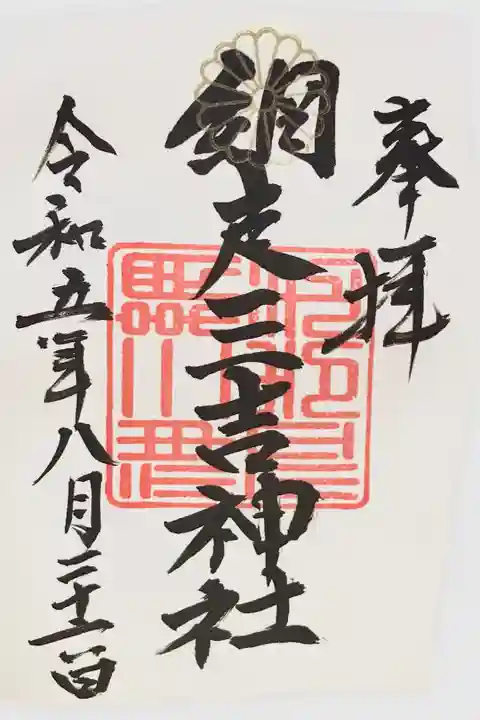 奉拝
網走三吉神社
令和五年八月二十一日